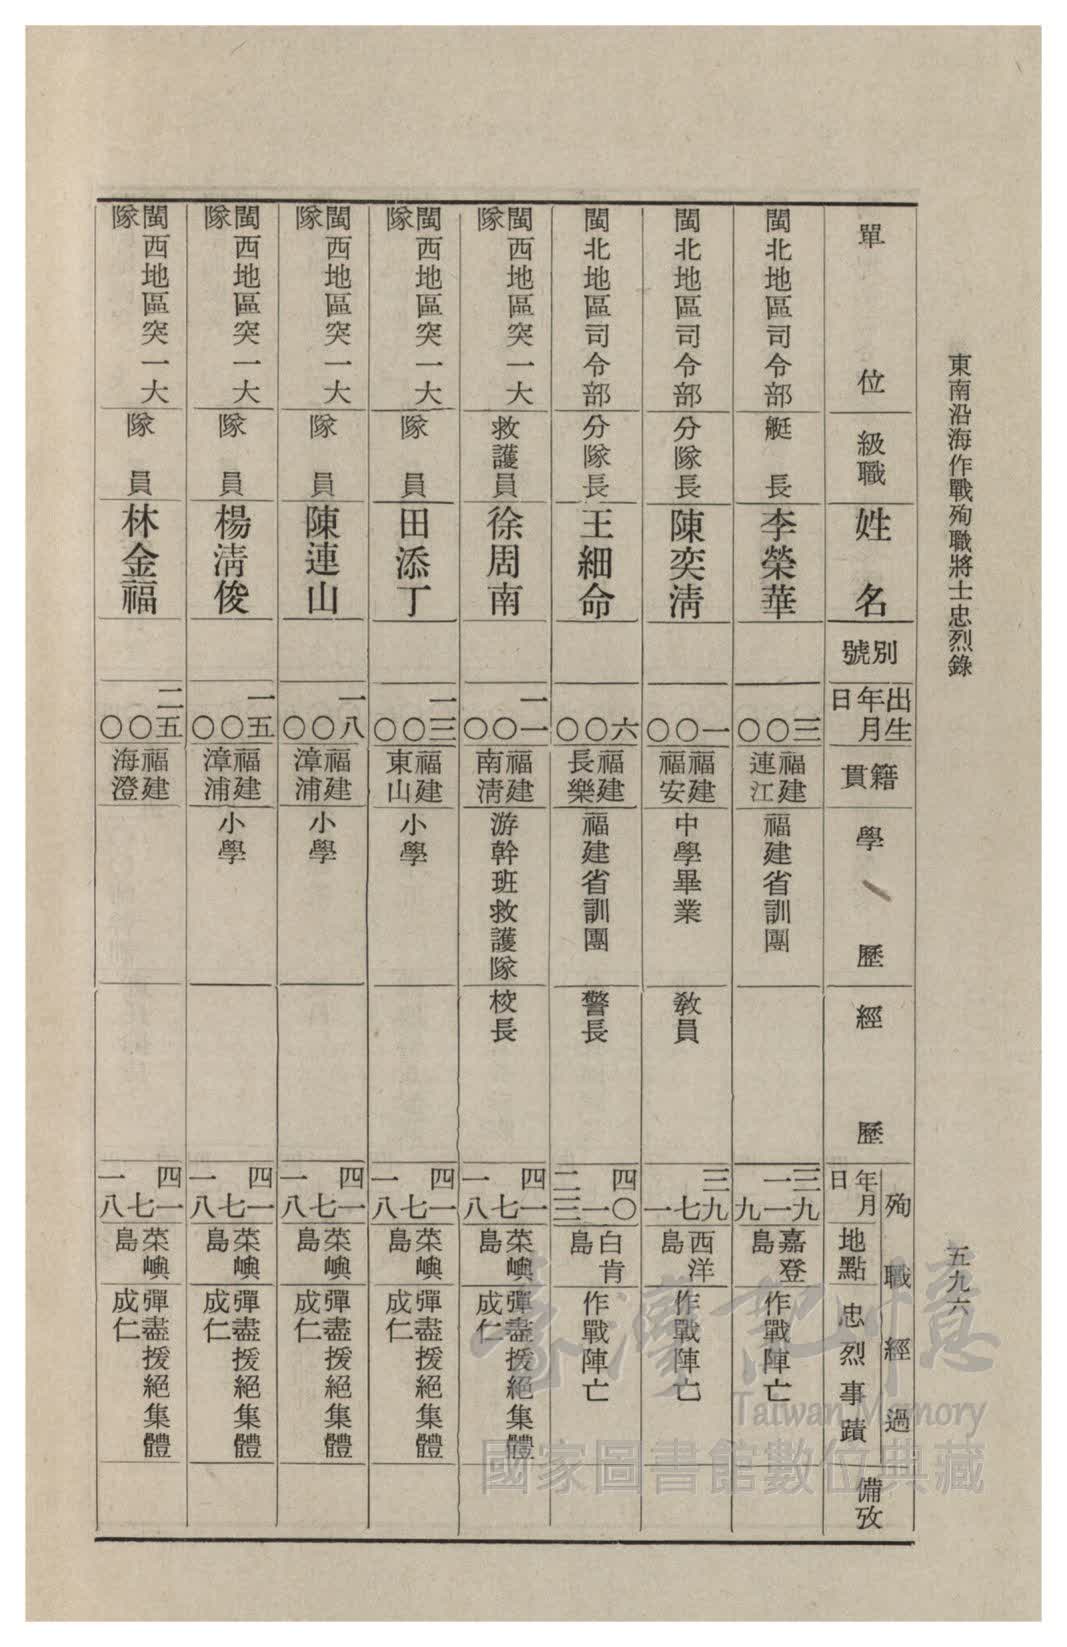 東南沿海作戰殉職將士忠烈錄
五九六
單位
級職
姓名
別號
出生年月日
籍貫
學歷
經歷
殉職經過
年月日
地點
忠烈事蹟
備攷
閩北地區司令部
艇長
李榮華
三〇〇
福建連江
福建省訓團
三九一一一九
嘉登島
作戰陣亡
閩北地區司令部
分隊長
陳奕清
一〇〇
福建福安
中學畢業
教員
三九七一
西洋島
作戰陣亡
閩北地區司令部
分隊長
王細命
六〇〇
福建長樂
福建省訓團
警長
四〇一二三
白肯島
作戰陣亡
閩西地區突一大隊
救護員
徐周南
一一〇〇
福建南清
游幹班救護隊
校長
四一七一八
菜嶼島
彈盡援絕集體成仁
閩西地區突一大隊
隊員
田添丁
一三〇〇
福建東山
小學
四一七一八
菜嶼島
彈盡援絕集體成仁
閩西地區突一大隊
隊員
陳連山
一八〇〇
福建漳浦
小學
四一七一八
菜嶼島
彈盡援絕集體成仁
閩西地區突一大隊
隊員
楊清俊
一五〇〇
福建漳浦
小學
四一七一八
菜嶼島
彈盡援絕集體成仁
閩西地區突一大隊
隊員
林金福
二五〇〇
福建海澄
四一七一八
菜嶼島
彈盡援絕集體成仁
臺灣記憶
Taiwan Memory
國家圖書館數位典藏